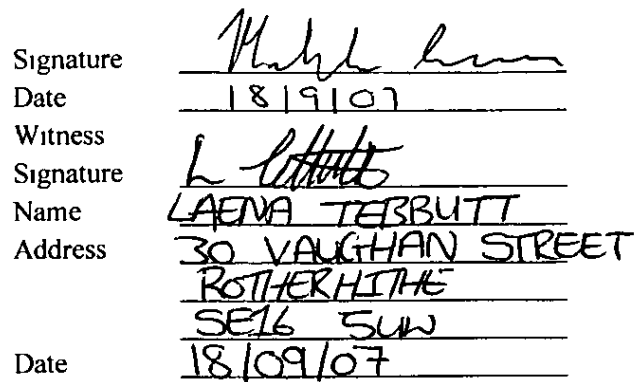 Signature
Date 18/9/07
Witness
Signature
Name LAENA TEBBUTT
Address 30 VAUGHAN STREET
ROTHERHITHE
SE16 5UW
Date 18/09/07